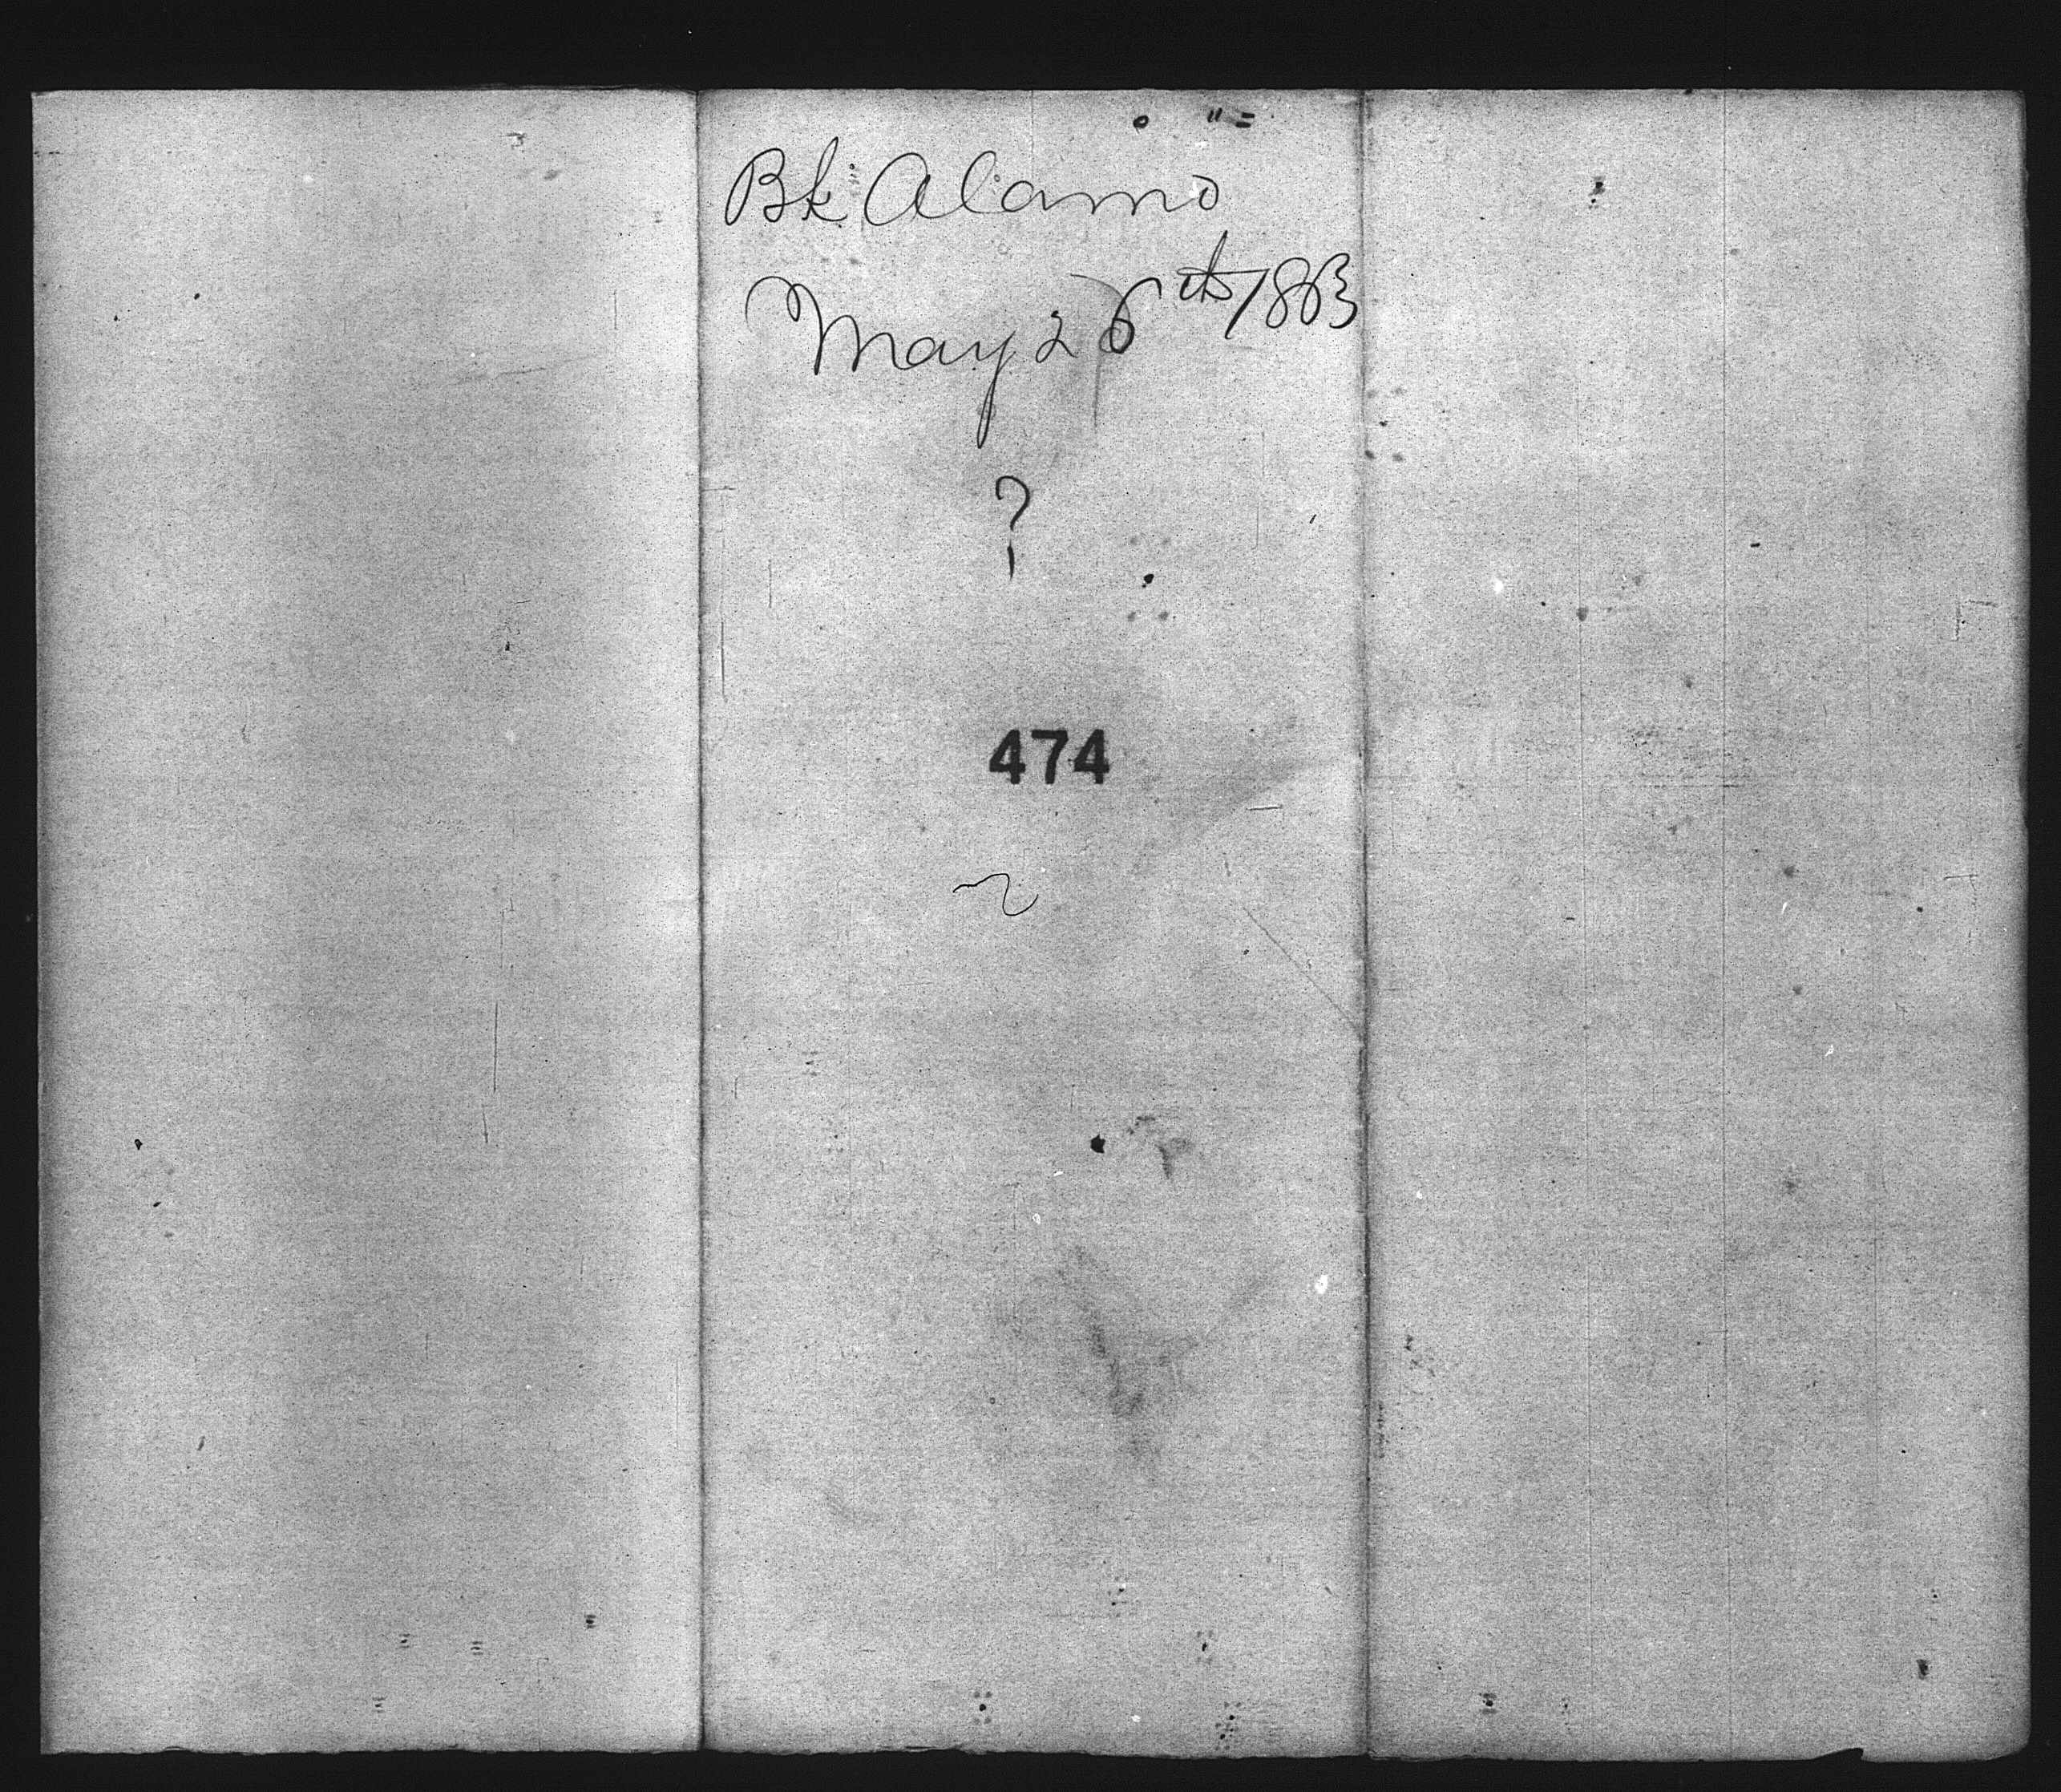 Bk Alamo
May 26th/1863
?
474